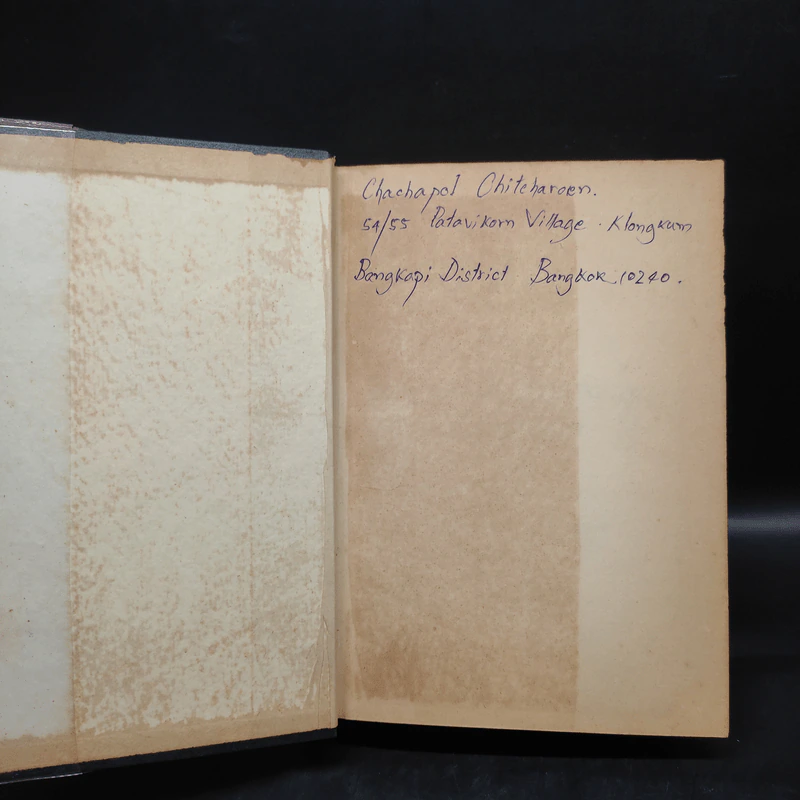 Chachapol Chitcharoen.
54/55 Patavikorn Village. Klongkum
Bangkapi District Bangkok 10240.